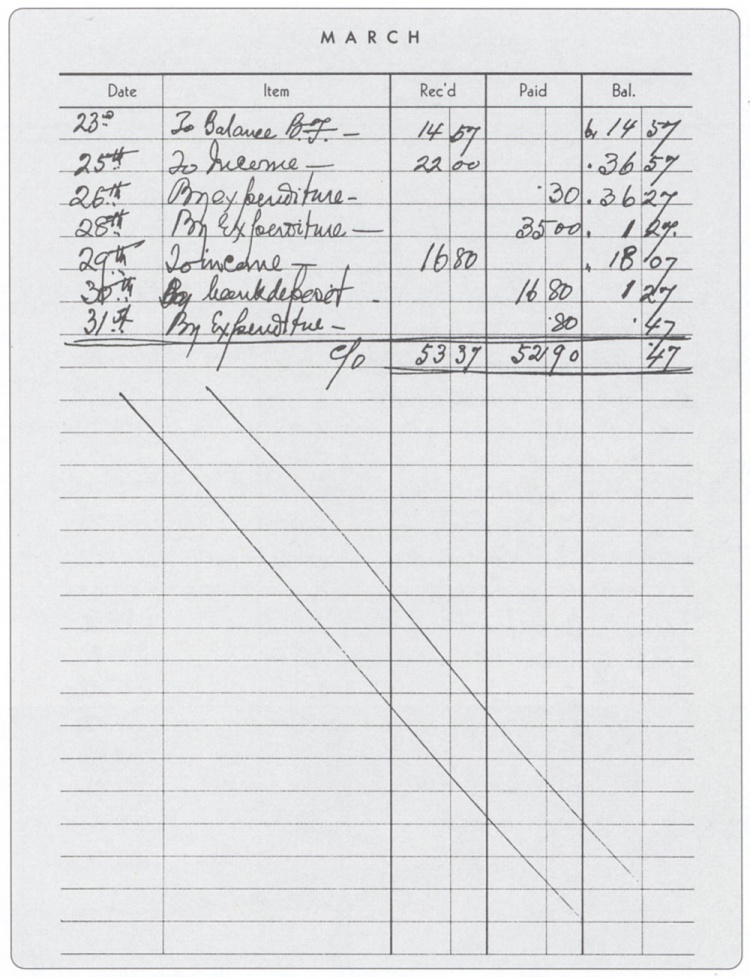 MARCH
Date Item Rec'd Paid Bal.
23rd To Balance B.F. — 14 57 14 57
25th To Income — 22 00 . 36 57
26th By expenditure - .30 . 36 27
28th By Expenditure — 35 00 . 1 27.
29th To income — 16 80 18 07
30th By bank deposit - 16 80 1 27
31st By Expenditue - .80 .47
c/o 53 37 52 90 .47